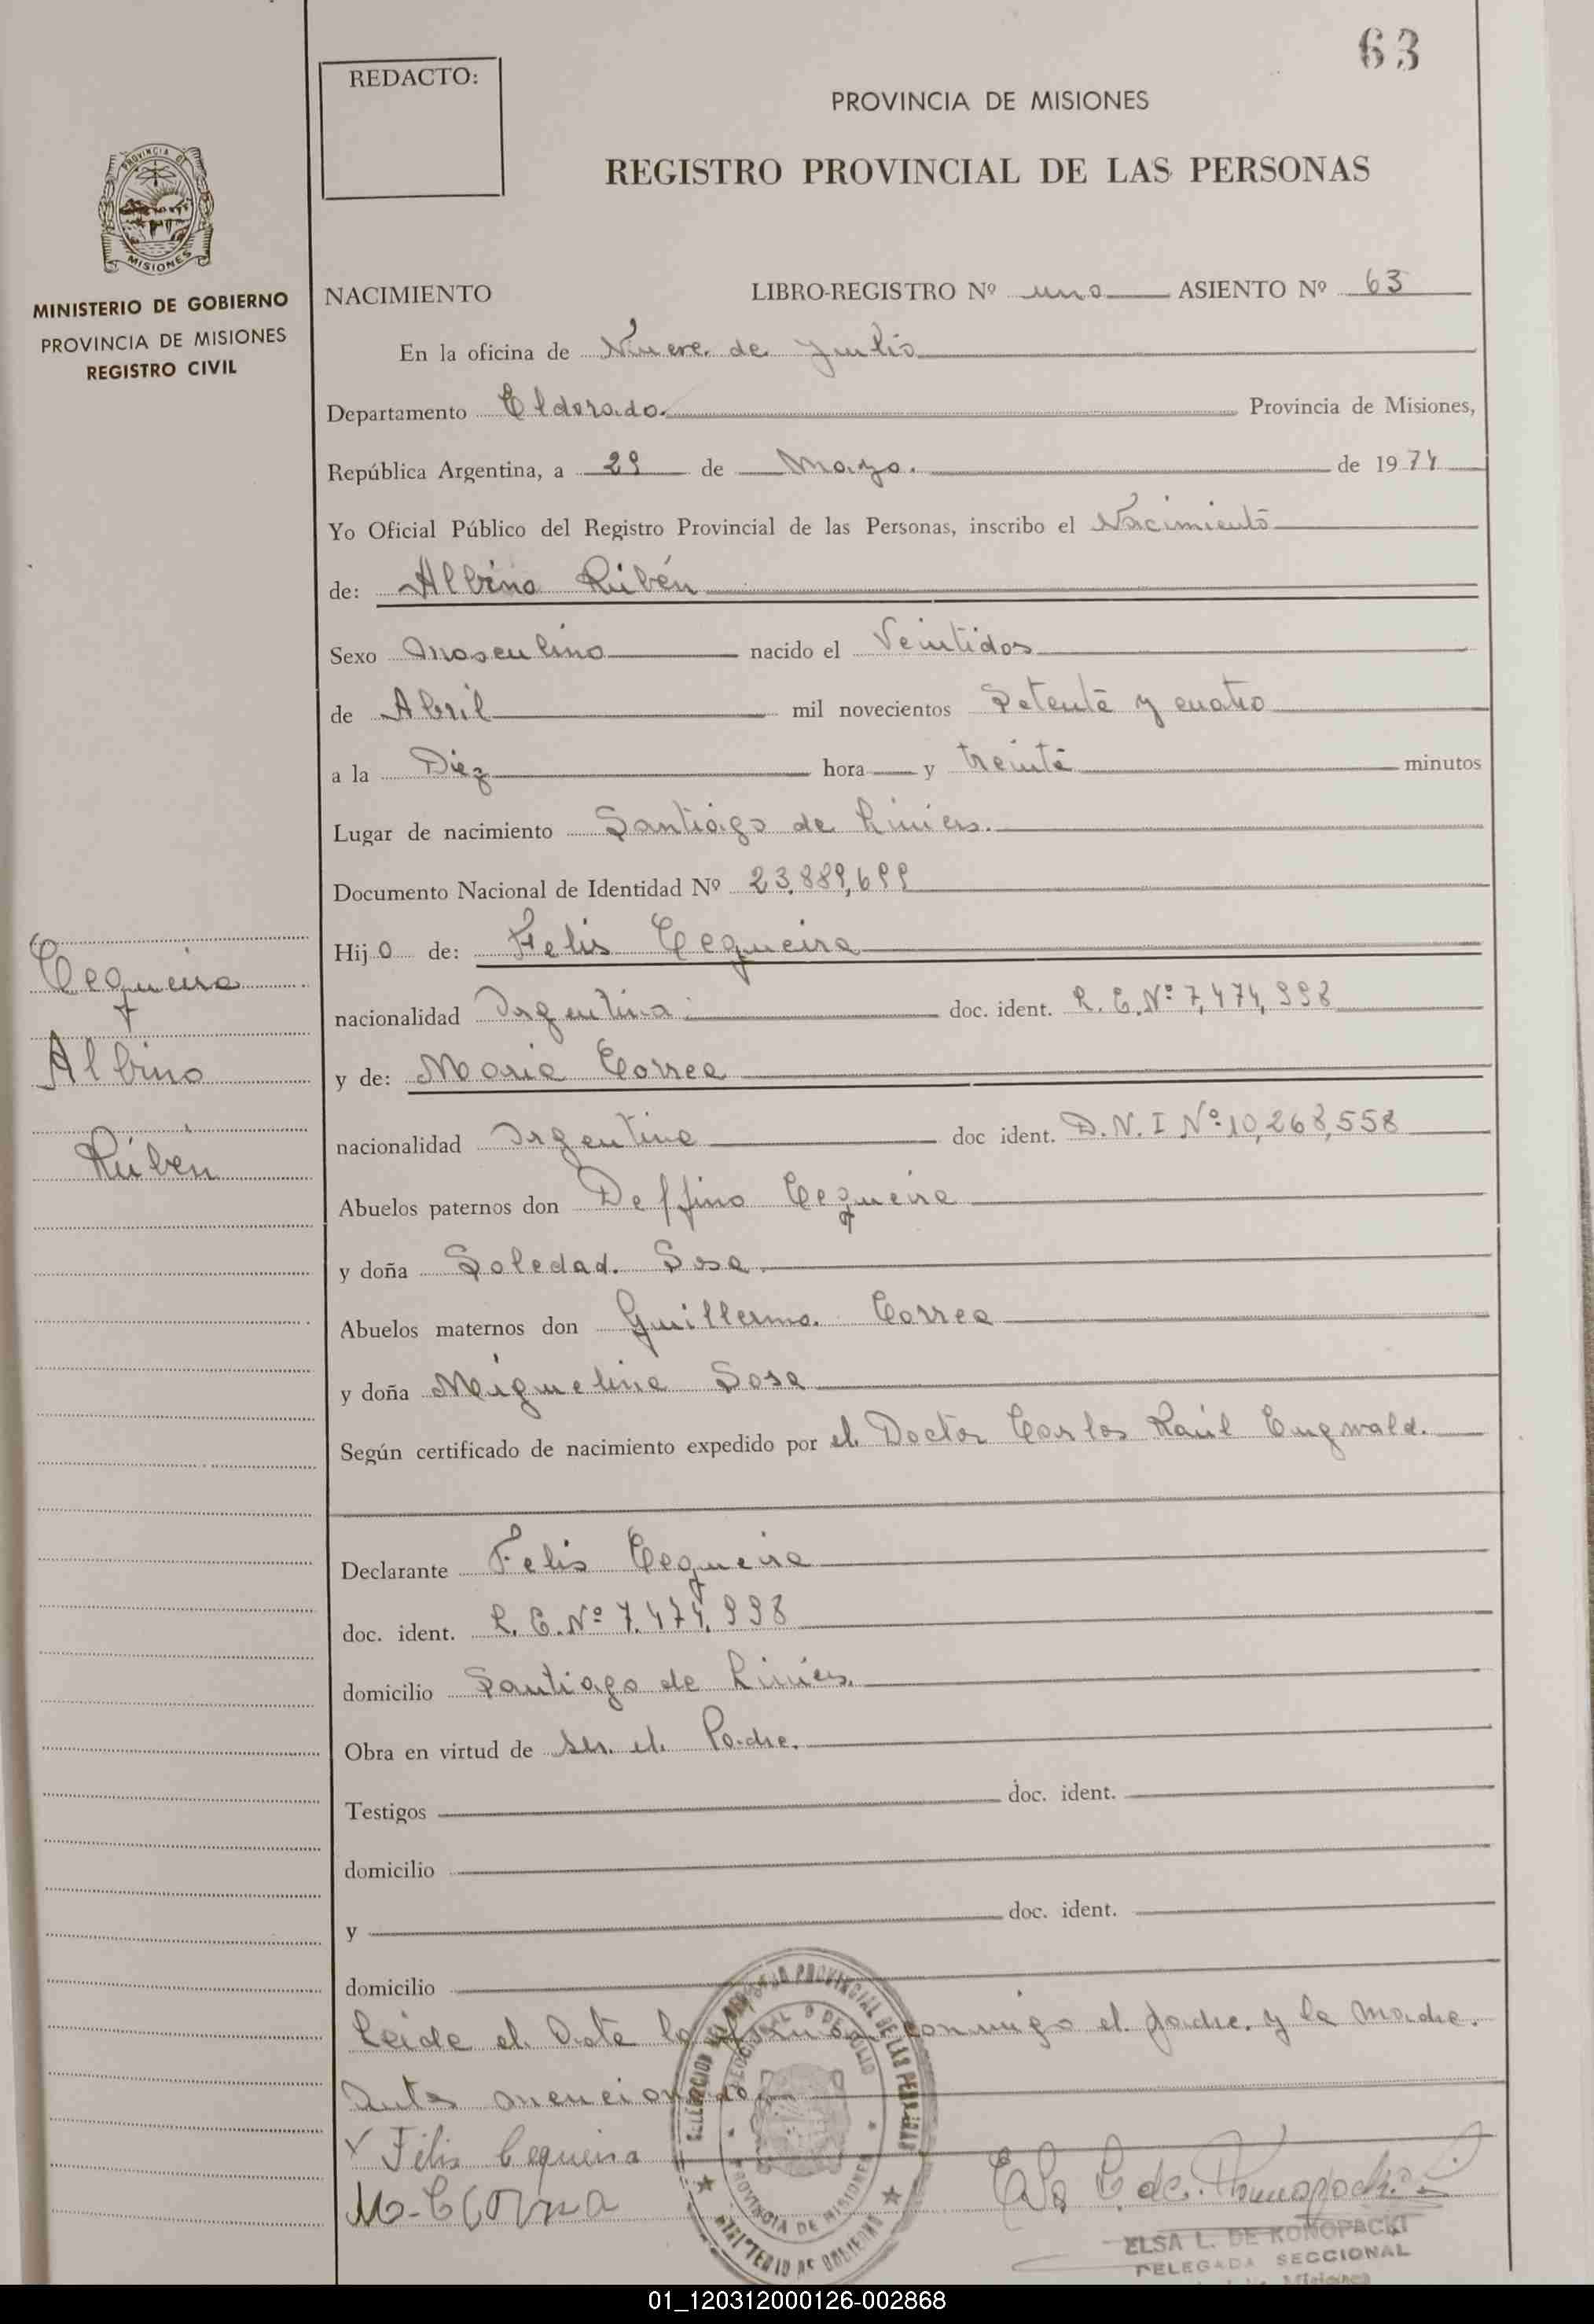 63
REDACTO:
PROVINCIA DE MISIONES
REGISTRO PROVINCIAL DE LAS PERSONAS
PROVINCIA DE
MISIONES
MINISTERIO DE GOBIERNO
PROVINCIA DE MISIONES
REGISTRO CIVIL
NACIMIENTO LIBRO-REGISTRO Nº uno ASIENTO Nº 63
En la oficina de Nueve de Julio
Departamento Eldorado. Provincia de Misiones,
República Argentina, a 29 de Mayo. de 1974
Yo Oficial Público del Registro Provincial de las Personas, inscribo el Nacimiento
de: Albino Rubén
Sexo Masculino nacido el Veintidos
de Abril mil novecientos Setenta y cuatro
a la Diez hora y treinta minutos
Lugar de nacimiento Santiago de Liniers.
Documento Nacional de Identidad Nº 23,889,699
Hijo de: Felis Cequeira
nacionalidad Argentina. doc. ident. L. E. Nº 7,474,998
y de: Maria Correa
nacionalidad Argentina doc ident. D.N.I Nº 10,268,558
Abuelos paternos don Delfino Cequeira
y doña Soledad. Sosa.
Abuelos maternos don Guillermo. Correa
y doña Miguelina Sosa
Según certificado de nacimiento expedido por el Doctor Carlos Raúl Engwald.
Declarante Felis Cequeira
doc. ident. L. E. Nº 7.474.998
domicilio Santiago de Liniers.
Obra en virtud de ser el Padre.
Testigos doc. ident.
domicilio
y doc. ident.
domicilio
Leida el Acta la firman conmigo el padre. y la madre.
Antes mencionado
x Felis Cequeira
M-C Correa
ELSA L. DE KONOPACKI
DELEGADA SECCIONAL
Misiones
Cequeira
Albino
Rubén
PROVINCIA DE MISIONES
MINISTERIO DE GOBIERNO
01_120312000126-002868